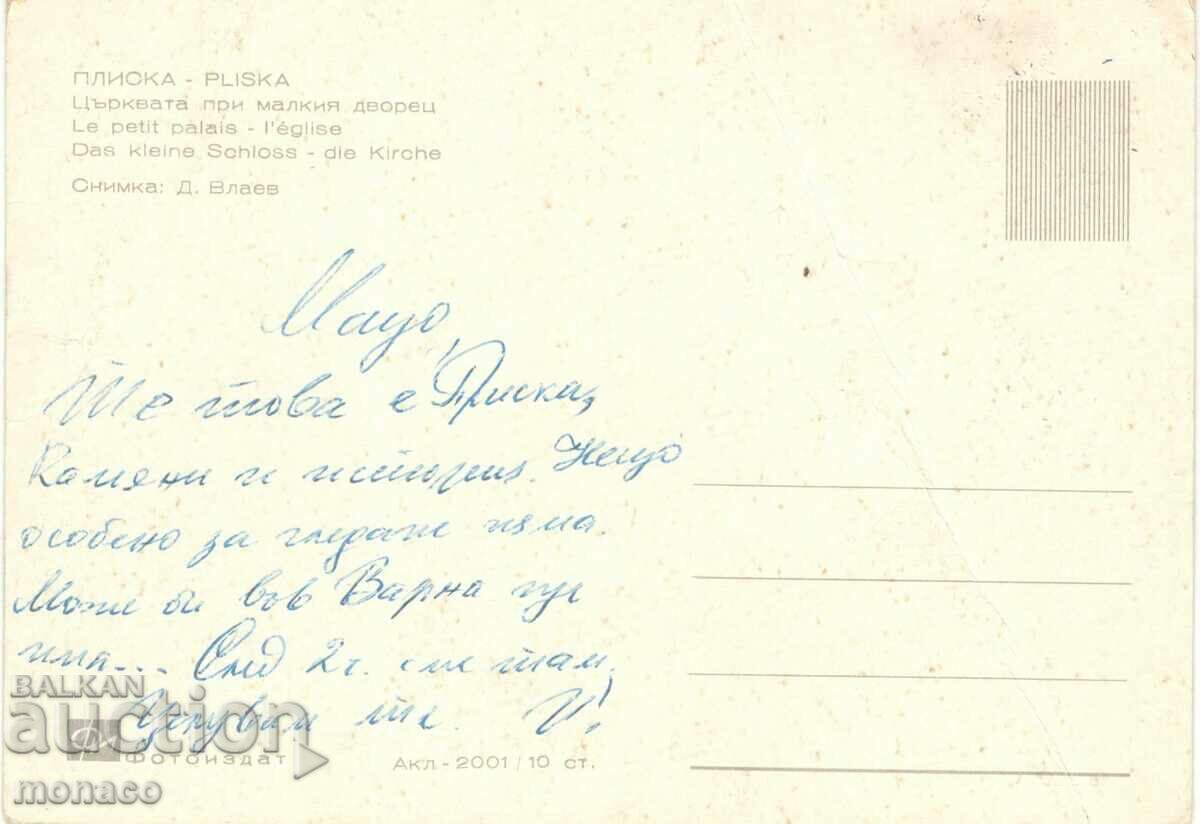 ПЛИСКА - PLISKA
Църквата при малкия дворец
Le petit palais - l'église
Das kleine Schloss - die Kirche
Снимка: Д. Влаев
това е Плиска,
Камъни и история. Нещо
особено за гледане няма.
Може би във Варна ще
има... След 2 ч. сме там.
Целувам те. И!
BALKAN
auction
monaco
Фотоиздат
Акл - 2001 / 10 ст.